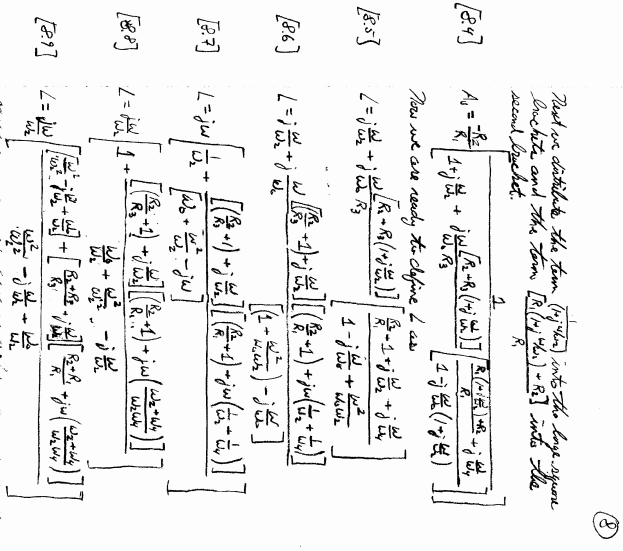 8
Next we distribute the term (1+jω/ω₂) into the large square
brackets and the term [R₁(1+jω/ω₂)+R₂] / R₁ into the
second bracket.
[8.4] A₁ = -R₂/R₁ [ 1 / ( 1 + jω/ω₂ + jω/ω₀R₃ [R₂+R₃(1+jω/ω₂)] [ (R₁(1+jω/ω₂)+R₂)/R₁ + jω/ω₄ ] / [ 1-jω/ω₀(1+jω/ω₂) ] ) ]
Now we are ready to define L as
[8.5] L = jω/ω₂ + jω/ω₀R₃ [R₂+R₃(1+jω/ω₂)] [ (R₂/R₁ + 1 + jω/ω₂ + jω/ω₄) / (1 - jω/ω₀ + ω²/ω₀ω₂) ]
[8.6] L = jω/ω₂ + jω/ω₀ [(R₂/R₃ + 1) + jω/ω₂] [(R₂/R₁ + 1) + jω(1/ω₂ + 1/ω₄)] / [(1 + ω²/ω₀ω₂) - jω/ω₀]
[8.7] L = jω [ 1/ω₂ + [(R₂/R₃ + 1) + jω/ω₂] [(R₂/R₁ + 1) + jω(1/ω₂ + 1/ω₄)] / [ω₀ + ω²/ω₂ - jω] ]
[8.8] L = jω/ω₂ [ 1 + [(R₂/R₃ + 1) + jω/ω₂] [(R₂/R₁ + 1) + jω((ω₂+ω₄)/ω₂ω₄)] / (ω₀/ω₂ + ω²/ω₂² - jω/ω₂) ]
[8.9] L = jω/ω₂ [ [ω²/ω₂² - jω/ω₂ + ω₀/ω₂] + [(R₂+R₃)/R₃ + jω/ω₂] [(R₂+R₁)/R₁ + jω((ω₂+ω₄)/ω₂ω₄)] / (ω²/ω₂² - jω/ω₂ + ω₀/ω₂) ]